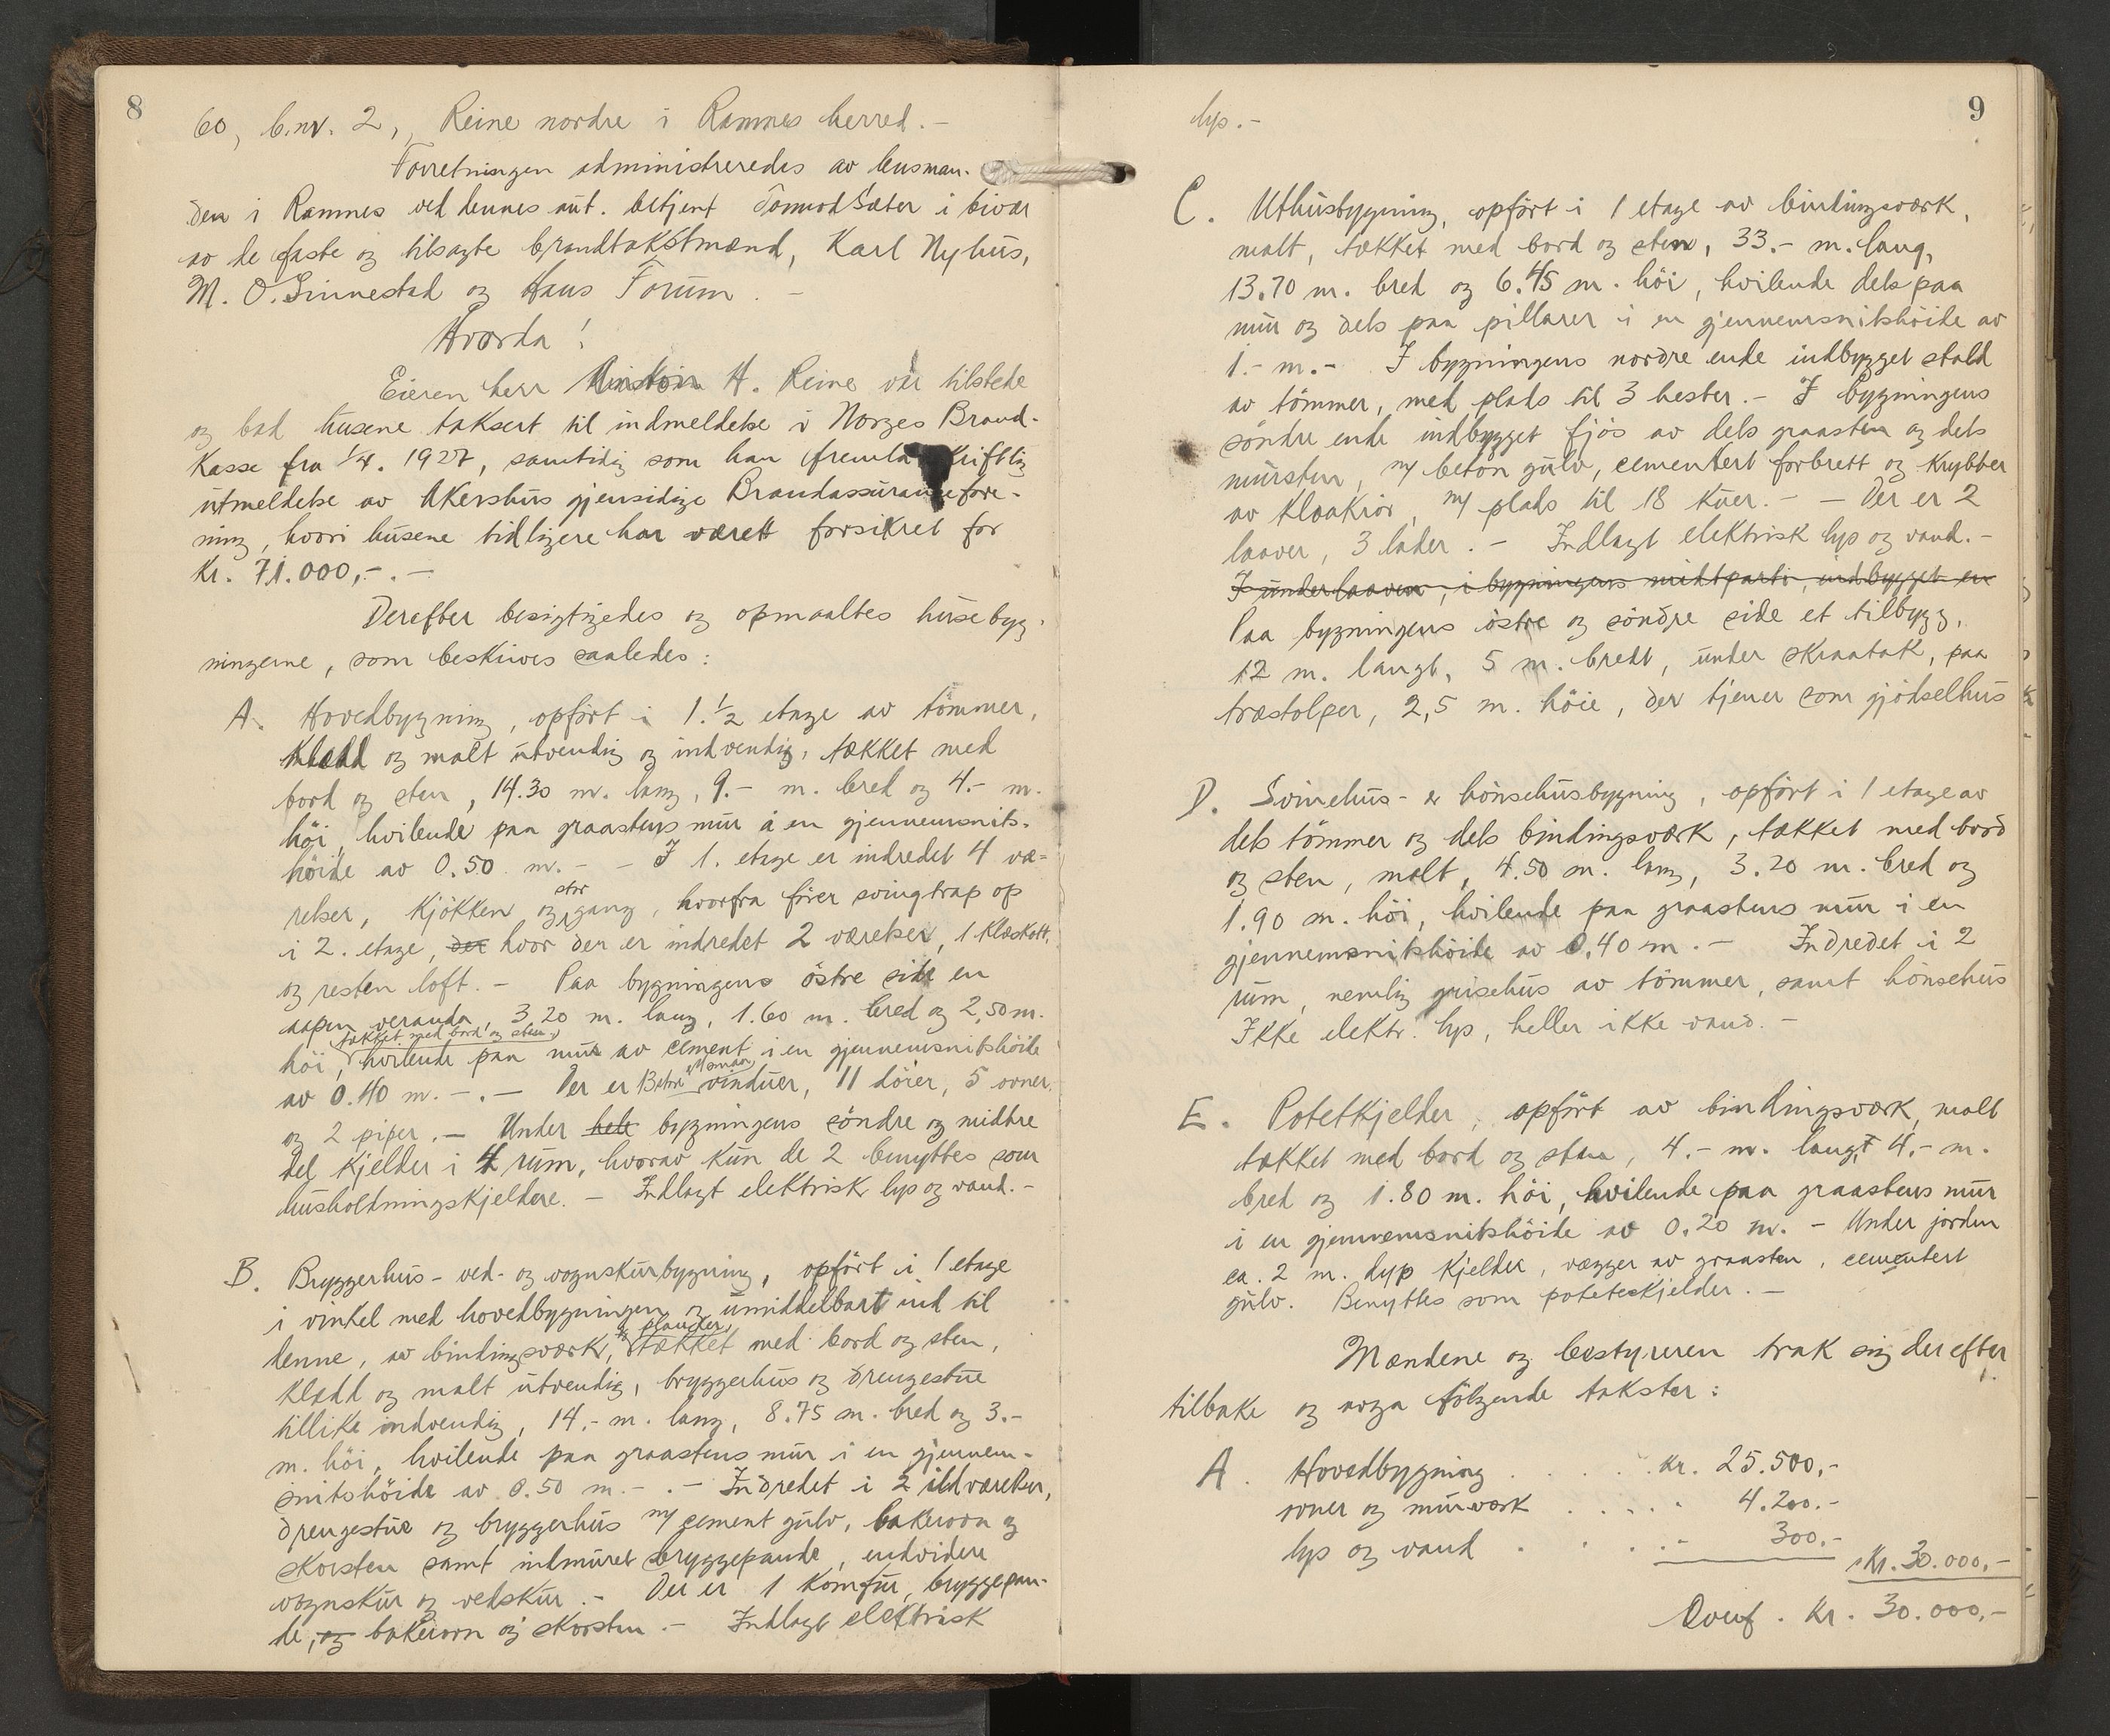 8
60, b.nr. 2, Reine nordre i Ramnes herred. -
Forretningen administreredes av lensman-
den i Ramnes ved dennes aut. betjent Tormod Sæter i bivær
av de faste og tilsagte brandtakstmænd, Karl Nyhus,
M. O. Linnestad og Hans Forum. -
Hvorda!
Eieren herr Anton H. Reine var tilstede
og bad husene taksert til indmeldelse i Norges Brand-
Kasse fra 1/4. 1927, samtidig som han fremla skriftlig
utmeldelse av Akershus gjensidige Brandassuransefore-
ning, hvori husene tidligere har været forsikret for
Kr. 71.000,-. -
Derefter besigtigedes og opmaaltes husebyg-
ningerne, som beskrives saaledes:
A. Hovedbygning, opført i 1.1/2 etage av tømmer,
klædd og malt utvendig og indvendig, tækket med
bord og sten, 14.30 m. lang, 9.- m. bred og 4.- m.
høi, hvilende paa graastens mur i en gjennemsnits-
høide av 0.50 m. - - I 1. etage er indredet 4 væ-
relser, kjøkken og stor gang, hvorfra fører svingtrap op
i 2. etage, der hvor der er indredet 2 værelser, 1 klæskott,
og resten loft. - Paa bygningens østre side en
aapen veranda, 3,20 m. lang, 1.60 m. bred og 2,50 m.
høi, tækket med bord og sten, hvilende paa mur av cement i en gjennemsnitshøide
av 0.40 m. -.- Der er 13 store vinduer, 11 dører, 5 ovner
og 2 piper. - Under hele bygningens søndre og midtre
del kjelder i 4 rum, hvorav kun de 2 benyttes som
husholdningskjeldere. - Indlagt elektrisk lys og vand. -
B. Bryggerhus- ved- og vognskurbygning, opført i 1 etage
i vinkel med hovedbygningen og umiddelbart ind til
denne, av bindingsverk, og planker, tækket med bord og sten,
klædd og malt utvendig, bryggerhus og drengestue
tillike indvendig, 14,- m. lang, 8.75 m. bred og 3.-
m. høi, hvilende paa graastens mur i en gjennem-
snitshøide av 0.50 m. -.- Indredet i 2 ildværelser,
drengestue og bryggerhus m/ cement gulv, bakerovn og
skorsten samt indmuret bryggepande, endvidere
vognskur og vedskur. - Der er 1 komfur, bryggepan-
de, og bakerovn og skorsten. - Indlagt elektrisk
9
lys. -
C. Uthusbygning, opført i 1 etage av bindingsværk,
malt, tækket med bord og sten, 33.- m. lang,
13.70 m. bred og 6.45 m. høi, hvilende dels paa
mur og dels paa pillarer i en gjennemsnitshøide av
1.- m. - I bygningens nordre ende indbygget stald
av tømmer, med plads til 3 hester. - I bygningens
søndre ende indbygget fjøs av dels graasten og dels
mursten, m/ beton gulv, cementert forbrett og krybber
av kloakrør, m/ plads til 18 kuer. - - Der er 2
laaver, 3 lader. - Indlagt elektrisk lys og vand. -
I underlaaven, i bygningens midtparti, indbygget en
Paa bygningens østre og søndre side et tilbygg,
12 m. langt, 5 m. bredt, under skraatak, paa
træstolper, 2,5 m. høie, der tjener som gjødselhus
D. Svinehus- og hønsehusbygning, opført i 1 etage av
dels tømmer og dels bindingsværk, tækket med bord
og sten, malt, 4.50 m. lang, 3.20 m. bred og
1.90 m. høi, hvilende paa graastens mur i en
gjennemsnitshøide av 0.40 m. - Indredet i 2
rum, nemlig grisehus av tømmer, samt hønsehus
Ikke elektr. lys, heller ikke vand. -
E. Potetkjelder, opført av bindingsværk, malt
tækket med bord og sten, 4.- m. langt 4.- m.
bred og 1.80 m. høi, hvilende paa graastens mur
i en gjennemsnitshøide av 0.20 m. - Under jorden
ca. 2 m. dyp kjelder, vægger av graasten, cementert
gulv. Benyttes som potetekjelder. -
Mændene og bestyreren trak sig derefter
tilbake og avga følgende takster:
A. Hovedbygning . . . . . kr. 25.500,-
ovner og murværk . . . . . 4.200.-
lys og vand . . . . . 300.-
Kr. 30.000,-
Overf. kr. 30.000,-